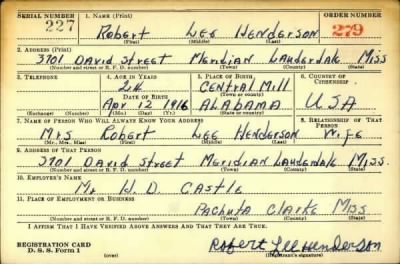 SERIAL NUMBER 1. NAME (Print) ORDER NUMBER
227 Robert Lee Henderson 279
(First) (Middle) (Last)
2. ADDRESS (Print)
3701 David Street Meridian Lauderdale Miss
(Number and street or R. F. D. number) (Town) (County) (State)
3. TELEPHONE 4. AGE IN YEARS 5. PLACE OF BIRTH 6. COUNTRY OF CITIZENSHIP
24 Central Mill
DATE OF BIRTH (Town or county)
Apr 12 1916 Alabama U.S.A
(Exchange) (Number) (Mo.) (Day) (Yr.) (State or country)
7. NAME OF PERSON WHO WILL ALWAYS KNOW YOUR ADDRESS 8. RELATIONSHIP OF THAT PERSON
Mrs Robert Lee Henderson Wife
(Mr., Mrs., Miss) (First) (Middle) (Last)
9. ADDRESS OF THAT PERSON
3701 David Street Meridian Lauderdale Miss.
(Number and street or R. F. D. number) (Town) (County) (State)
10. EMPLOYER'S NAME
Mr H. D. Castle
11. PLACE OF EMPLOYMENT OR BUSINESS
Pachuta Clarke Miss
(Number and street or R. F. D. number) (Town) (County) (State)
I AFFIRM THAT I HAVE VERIFIED ABOVE ANSWERS AND THAT THEY ARE TRUE.
Robert Lee Henderson
REGISTRATION CARD
D. S. S. Form 1 (over) (Registrant's signature)